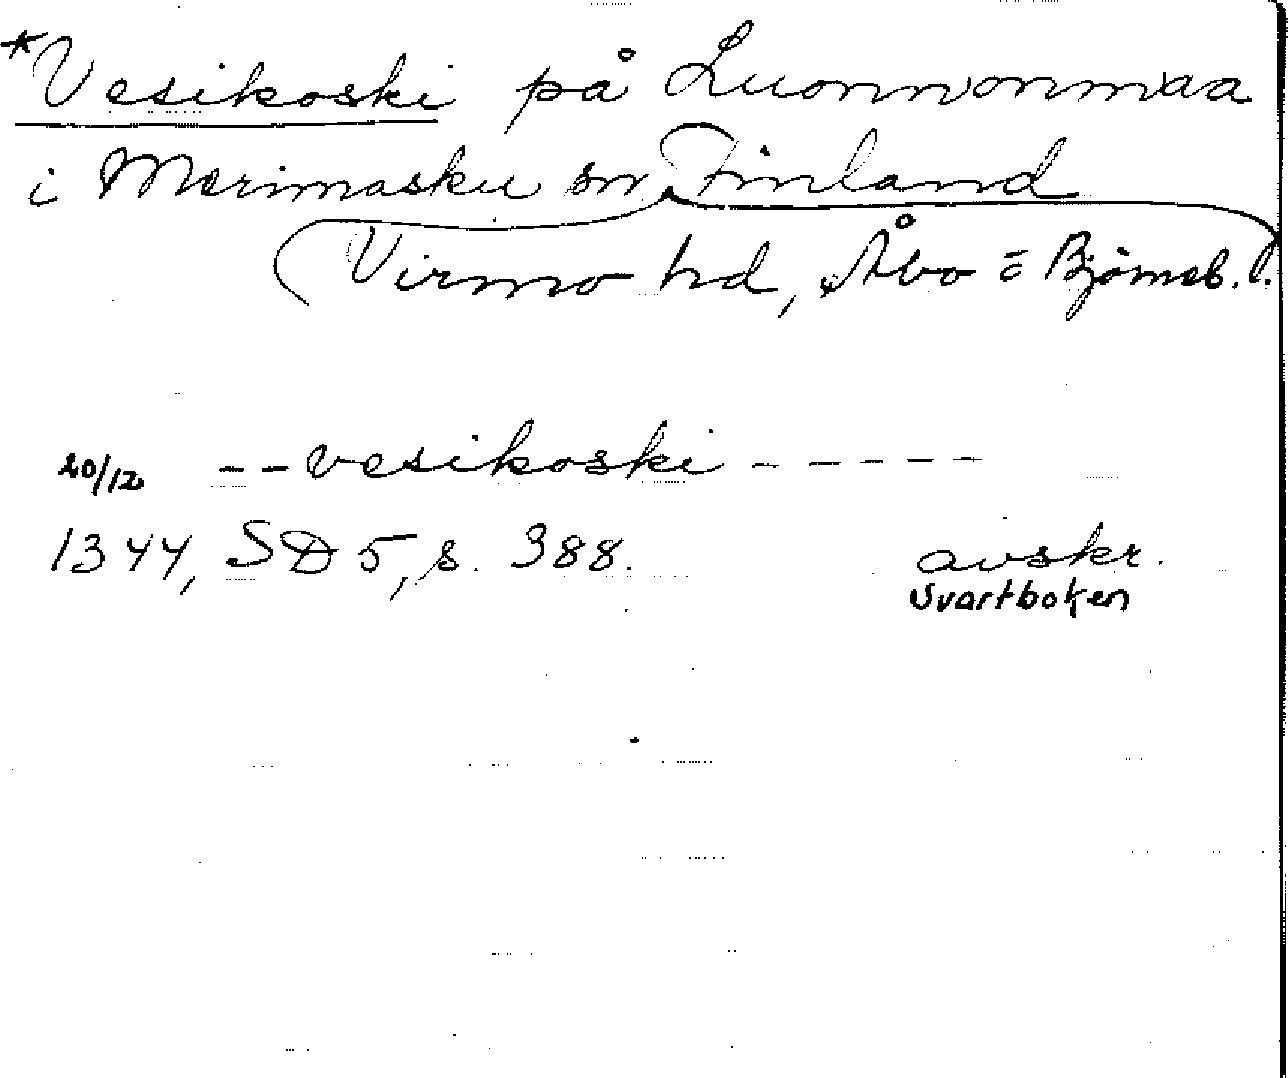 *Vesikoski på Luonnonmaa
i Merimasku sn Finland
Virmo hd, Åbo o Björneb. l.
20/12 --vesikoski-----
1344, SD 5, s. 388. avskr.
Svartboken